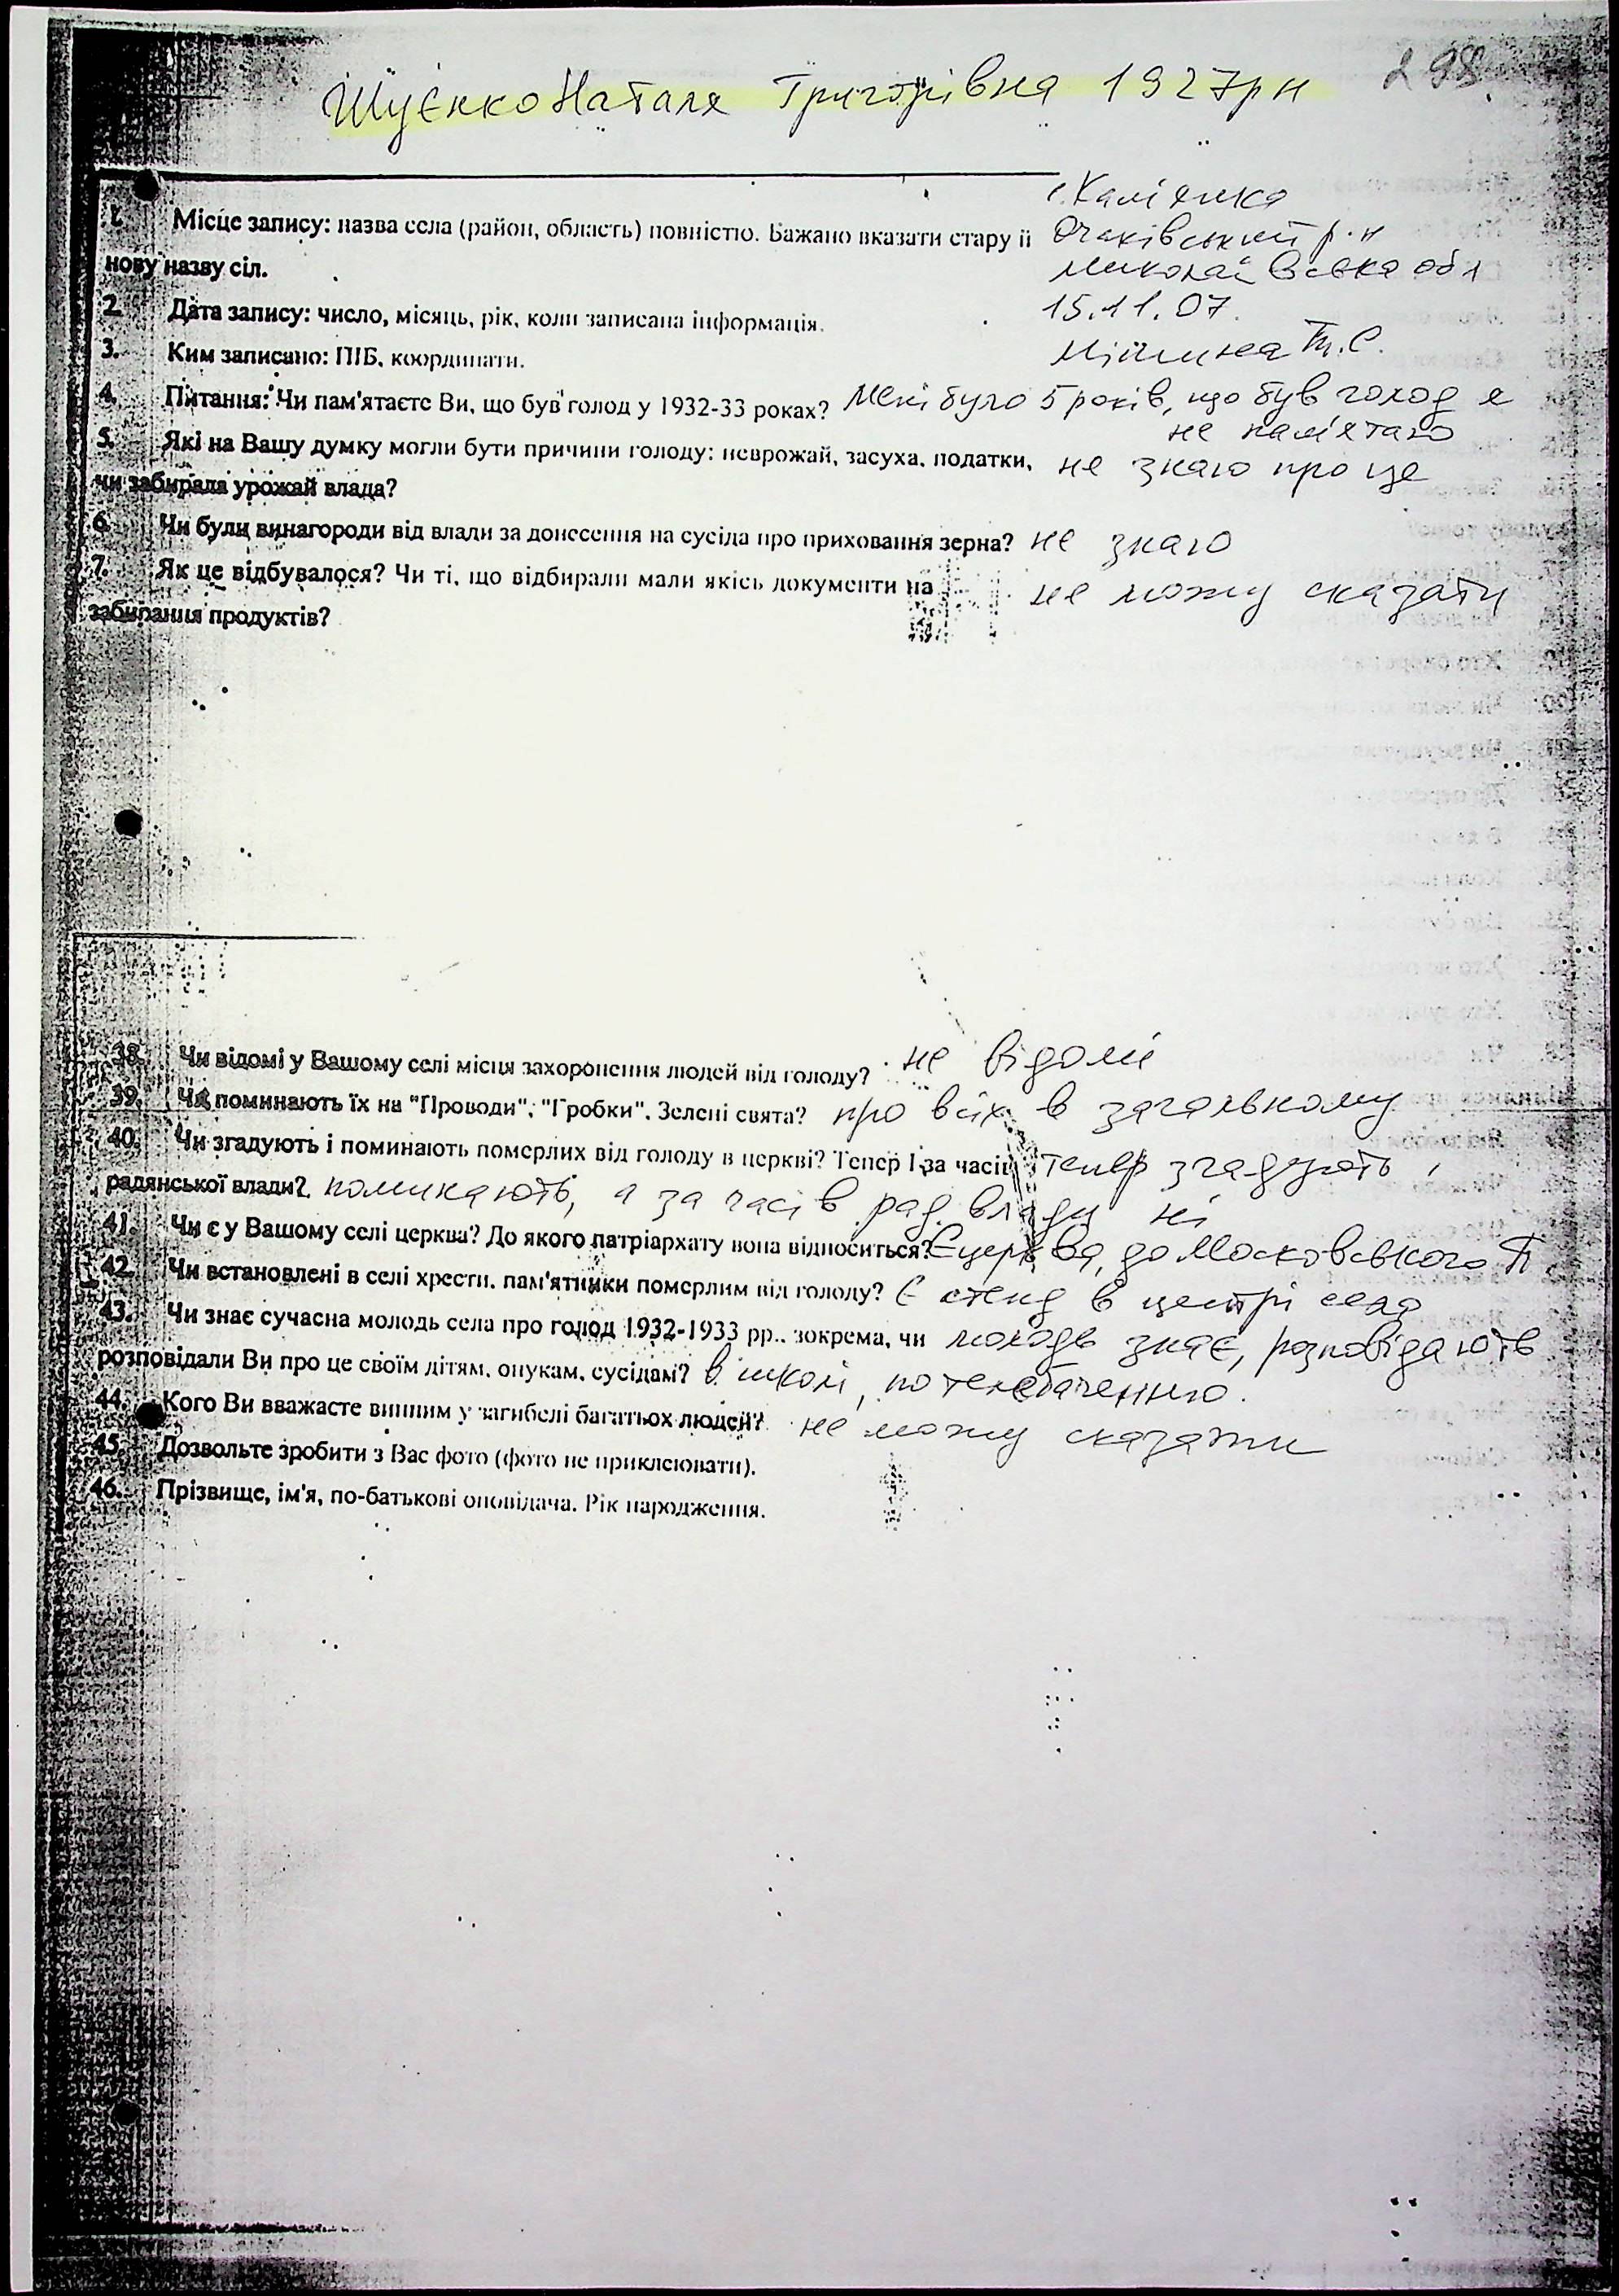 298
Шуєнко Наталя Григорівна 1927рн
с. Кам'янка
1. Місце запису: назва села (район, область) повністю. Бажано вказати стару й Очаківський р-н
нову назву сіл. Миколаївська обл
2. Дата запису: число, місяць, рік, коли записана інформація. 15.11.07.
3. Ким записано: ПІБ, координати. Т.С.
4. Питання: Чи пам'ятаєте Ви, що був голод у 1932-33 роках? Мені було 5 років, що був голод я
не пам'ятаю
5. Які на Вашу думку могли бути причини голоду: неврожай, засуха, податки, не знаю про це
чи забирала урожай влада?
6. Чи були винагороди від влади за донесення на сусіда про приховання зерна? не знаю
7. Як це відбувалося? Чи ті, що відбирали мали якісь документи на не можу сказати
забирання продуктів?
38. Чи відомі у Вашому селі місця захоронення людей від голоду? не відомі
39. Чи поминають їх на "Проводи"; "Гробки". Зелені свята? про всіх в загальному
40. Чи згадують і поминають померлих від голоду в церкві? Тепер І за часів тепер згадують,
радянської влади? поминають, а за часів рад. влади ні
41. Чи є у Вашому селі церква? До якого патріархату вона відноситься? Є церква, до Московського П.
42. Чи встановлені в селі хрести, пам'ятники померлим від голоду? Є стенд в центрі села
43. Чи знає сучасна молодь села про голод 1932-1933 рр., зокрема, чи молодь знає, розповідають
розповідали Ви про це своїм дітям, онукам, сусідам? в школі, по телебаченню.
44. Кого Ви вважаєте винним у загибелі багатьох людей? не можу сказати
45. Дозвольте зробити з Вас фото (фото не приклеювати).
46. Прізвище, ім'я, по-батькові оповідача. Рік народження.